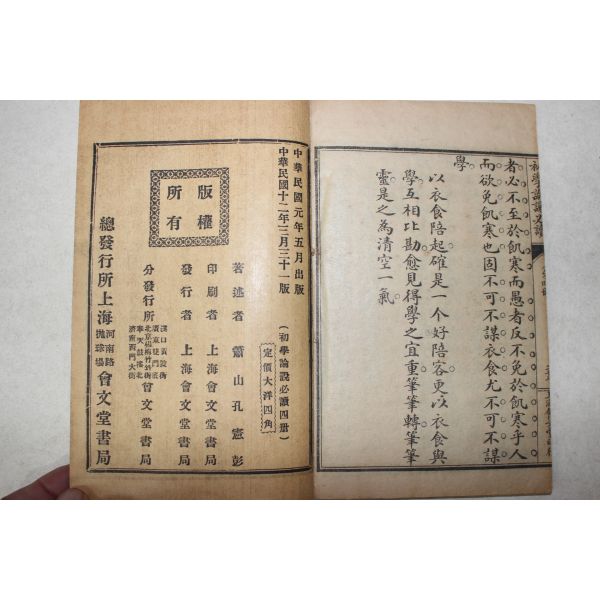 初學論說必讀
者必不至於飢寒而愚者反不免於飢寒乎人
而欲免飢寒也固不可不謀衣食尤不可不謀
學
以衣食陪起確是一個好陪客更以衣食與
學互相比勘愈見得學之宜重筆筆轉筆筆
靈是之為清空一氣
中華民國元年五月出版
中華民國十二年三月三十一版
(初學論說必讀四册)
定價大洋四角
版權所有
著述者 蕭山孔憲彭
印刷者 上海會文堂書局
發行者 上海會文堂書局
分發行所
漢口黃陂街
北京楊梅竹斜街
奉天鼓樓北
濟南西門大街
會文堂書局
總發行所上海
河南路
拋球場
會文堂書局